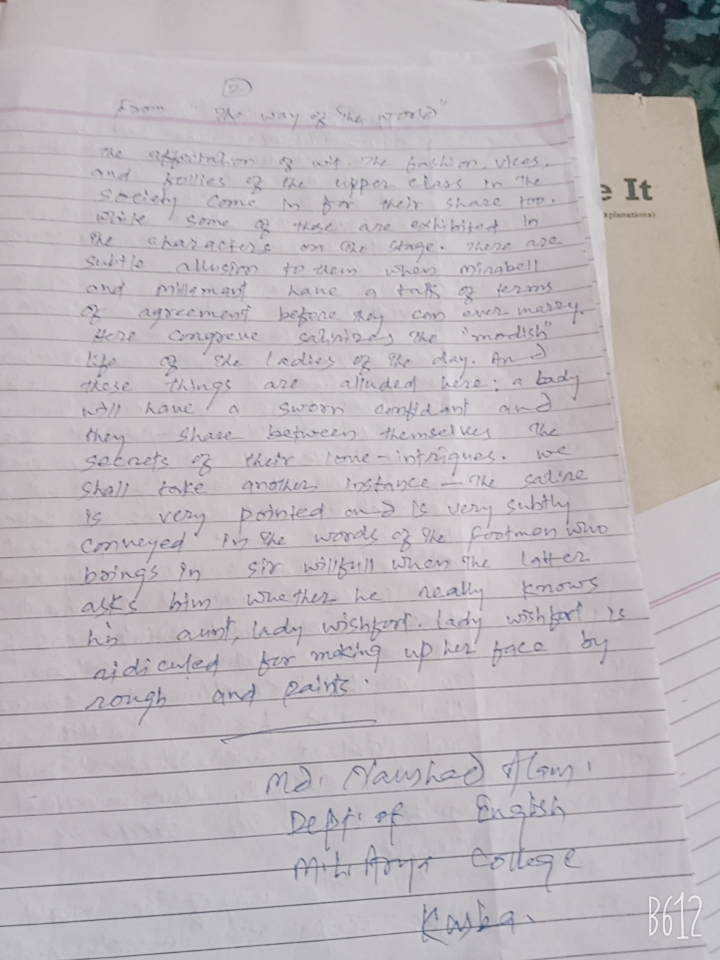 2
from "The way of the world"
The affectation of wit, the fashion, vices,
and follies of the upper class in the
society come in for their share too.
While some of these are exhibited in
the characters on the stage. There are
subtle allusion to them when mirabell
and millemant have a talk of terms
of agreement before they can ever marry.
Here congreve satirizes the "modish"
life of the ladies of the day. And
these things are alluded here: a lady
will have a sworn confidant and
they share between themselves the
secrets of their love-intrigues. we
shall take another instance - The satire
is very pointed and is very subtly
conveyed in the words of the footman who
brings in sir willfull when the latter
asks him whether he really knows
his aunt, lady wishfort. lady wishfort is
ridiculed for making up her face by
rough and paints.
Md. Naushad Alam.
Dept. of English
M.L. Arya College
Kasba.
e It
xplanations)
B612